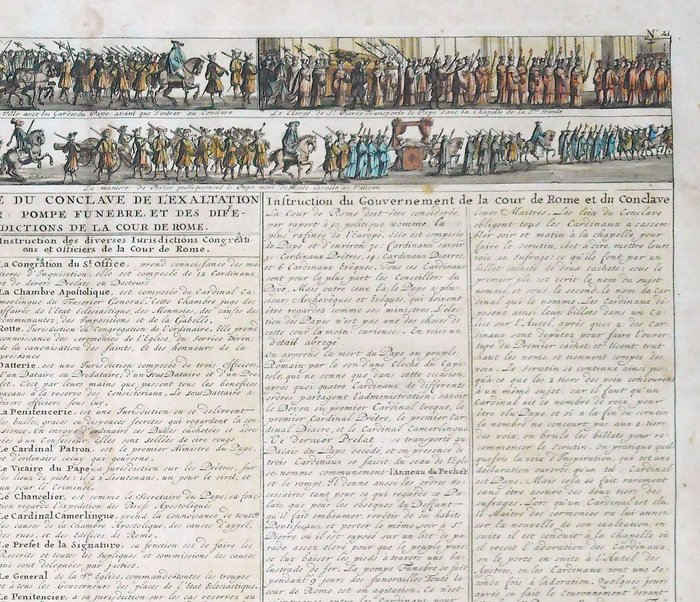 N.º 21
Ville avec les Gardes du Pape, avant que d'entrer au Conclave
Le Clergé de S.t Pierre Transporte le Pape dans la Chapelle de la S.te Trinité
La maniere de Porter publiquement le Pape mort de Monte Cavallo au Vatican
E DU CONCLAVE DE L'EXALTATION
POMPE FUNEBRE, ET DES DIFE-
DICTIONS DE LA COUR DE ROME.
Instruction des diverses Iurisdictions Congrati-
ons et Officiers de la Cour de Rome.
La Congrãtion du S.t Office, prend connoissance des ma-
tieres d'Inquisition; elle est composée de 12 Cardinaux
et de divers Prelats ou Docteurs.
La Chambre Apostolique, est composée du Cardinal Ca-
merlingue du Tresorier General. Cette Chambre juge des
affaires de l'Etat Ecclésiastique, des Monoies, des causes des
Communautez des Impositions et de la Gabelle.
Rotte, Iurisdiction ou Congregation de l'Ordinaire. Elle prend
connoissance des ceremonies de l'Eglise, du Service Divin,
de la canonisation des Saints, et des honneurs de la
preseance
Datterie, est une Iurisdiction composée de trois Officiers
d'un Dataire ou Prodataire, d'un Sous Dataire et d'un Pre-
fet. C'est par leurs mains que passent tous les benefices
reservés des Consistoriaux. Le sous Dattaire a
divers officiers sous luy.
La Penitencerie, est une Iurisdiction où se delivrent
les bulles, graces ou dispences secretes qui regardent la con-
science. On envoie l'ordinaire des Penitens cachetée et adres-
sées à un Confesseur. Elles sont sellées de cire rouge
Le Cardinal Patron, est le premier Ministre du Pape
et d'ordinaire celui qui gouverne.
Le Vicaire du Pape a jurisdiction sur les Prêtres, sur
les lieux de pieté; il a 2 Lieutenans, un pour le civil, et
un pour le Criminel.
Le Chancelier, est comme le Secretaire du Pape, sa fonc-
tion regarde l'expedition des Brefs Apostoliques.
Le Cardinal Camerlingue, prend la connoissance de toutes
les causes de la Chambre Apostolique, des causes d'apel,
des rues, et des Maisons de Rome.
Le Prefet de la Signature, sa fonction est de faire les
Rescrits et toutes les supliques et commissions des causes
qui sont deleguées par justice.
Le General de la S.te Eglise, commande toutes les troupes
et a tous les Gouverneurs des places de l'Etat Ecclesiastique.
Le Penitencier, a sa jurisdiction sur les cas reservez au
Instruction du Gouvernement de la Cour de Rome et du Conclave
La Cour de Rome doit être considerée,
par raport à sa politique comme la
plus rafinée de l'Europe. Elle est composée
du Pape et d'environ 70. Cardinaux savoir
50 Cardinaux Prêtres, 14 Cardinaux Diacres,
et 6 Cardinaux Evêques. Tous ces Cardinaux
sont pour la plus part les Conseillers du
Pape. Mais outre ceux la le Pape a plu-
sieurs Archevêques et Evêques, qui doivent
être regardez comme ses ministres. L'élec-
tion des Papes n'est pas une des choses de
cette cour la moin curieuse. En voici un
détail abregé.
On aprend la mort du Pape au peuple
Romain par le son d'une Cloche du Capi-
tole qui ne sonne que dans cette occasion
apres quoi quatre Cardinaux de differents
ordres partagent l'administration; savoir
le Doyen ou premier Cardinal Evêque, le
premier Cardinal Prêtre, le premier Car-
dinal Diacre, et le Cardinal Camerlingue
Ce dernier Prelat se transporte au
Palais du Pape decedé, et en presence de
trois Cardinaux se saisit du seau de l'Egli-
se nommé communement l'Anneau du Pecheur
et le rompt. Il donne aussi les ordres ne-
cessaires tant pour ce qui regarde le Pa-
lais, que pour les obseques du Deffunt.
il fait embaumer, revêtir de ses habits
Pontificaux, et porter le même soir à S.t
Pierre où il est exposé sur un lict de pa-
rade assez élevé pour que le peuple puis-
se lui baiser les pieds à travers une ba-
lustrade de fer. La pompe Funebre se fait
pendant 9 jours de funerailles. Toute la
cour de Rome est en agitation. Ce n'est
leurs Maîtres. Les loix du Conclave
obligent tous les Cardinaux à s'assem-
bler soir et matin à la chapelle pour
faire le scrutin, c'est à dire, mettre leurs
voix au sufrage; ce qu'ils font par un
billet cacheté de deux cachets; sous le
premier est ecrit le nom du sujet
nommé, et sous le second le nom du Car-
dinal qui le nomme. Les Cardinaux dé-
posent ainsi leur billets dans un Ca-
lice sur l'Autel, après quoi 2 des Car-
dinaux sont députez pour faire l'ouver-
ture du Premier cachet, et il lisent tout
haut les noms, et tiennent compte des
voix. Le scrutin se continue ainsi jus-
qu'à ce que les 2 tiers des voix conviennent
en un même sujet, car il faut qu'un
Cardinal ait ce nombre de voix pour
être élu Pape, et si à la fin du scrutin
le nombre ne concourt pas aux 2 tiers
des voix, on brule les billets, pour re-
commencer le Scrutin. On pratique quel-
quefois la voix d'Inspiration, qui est une
déclaration ouverte qu'un tel Cardinal
est Pape. Mais cela se fait rarement
sans être assuré des deux tiers des
suffrages. Lors qu'un Cardinal est élu
le Maître des ceremonies va lui annon-
cer la nouvelle de son exaltation, en-
suite il est conduit à la chapelle où
il reçoit l'adoration des Cardinaux,
on le porte en suite à l'Autel des
Apôtres, où les Cardinaux vont une se-
conde fois à l'adoration. Quelques jours
après on fait le Couronnement